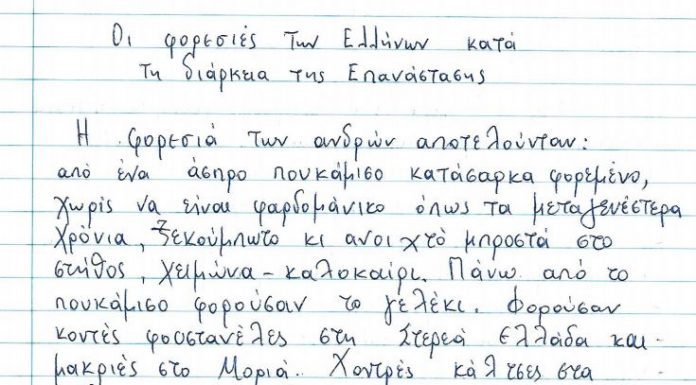 Οι φορεσιές των Ελλήνων κατά
τη διάρκεια της Επανάστασης
Η φορεσιά των ανδρών αποτελούνταν:
από ένα άσπρο πουκάμισο κατάσαρκα φορεμένο,
χωρίς να είναι φαρδομάνικο όπως τα μεταγενέστερα
χρόνια, ξεκούμπωτο κι ανοιχτό μπροστά στο
στήθος, χειμώνα-καλοκαίρι. Πάνω από το
πουκάμισο φορούσαν το γελέκι. Φορούσαν
κοντές φουστανέλες στη Στερεά Ελλάδα και
μακριές στο Μοριά. Χοντρές κάλτσες στα